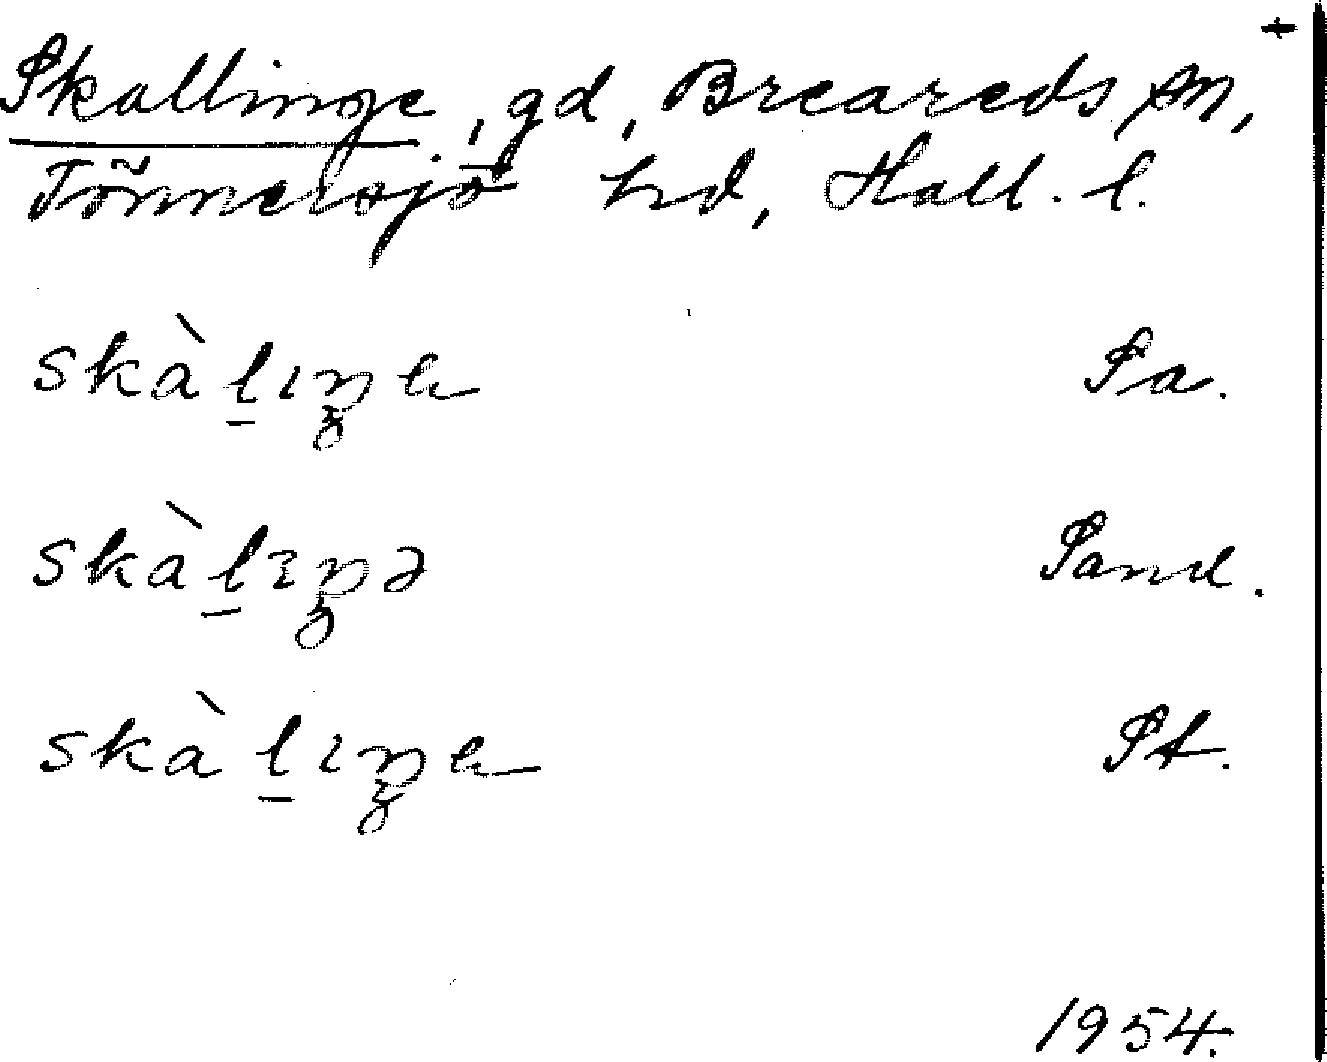 +
Skallinge, gd, Breareds sn,
Tönnersjö hd, Hall. l.
skàl̠ıŋ̥ɐ Sa.
skàl̠ıŋ̥ə Sand.
skàl̠ıŋ̥ɐ St.
1954.